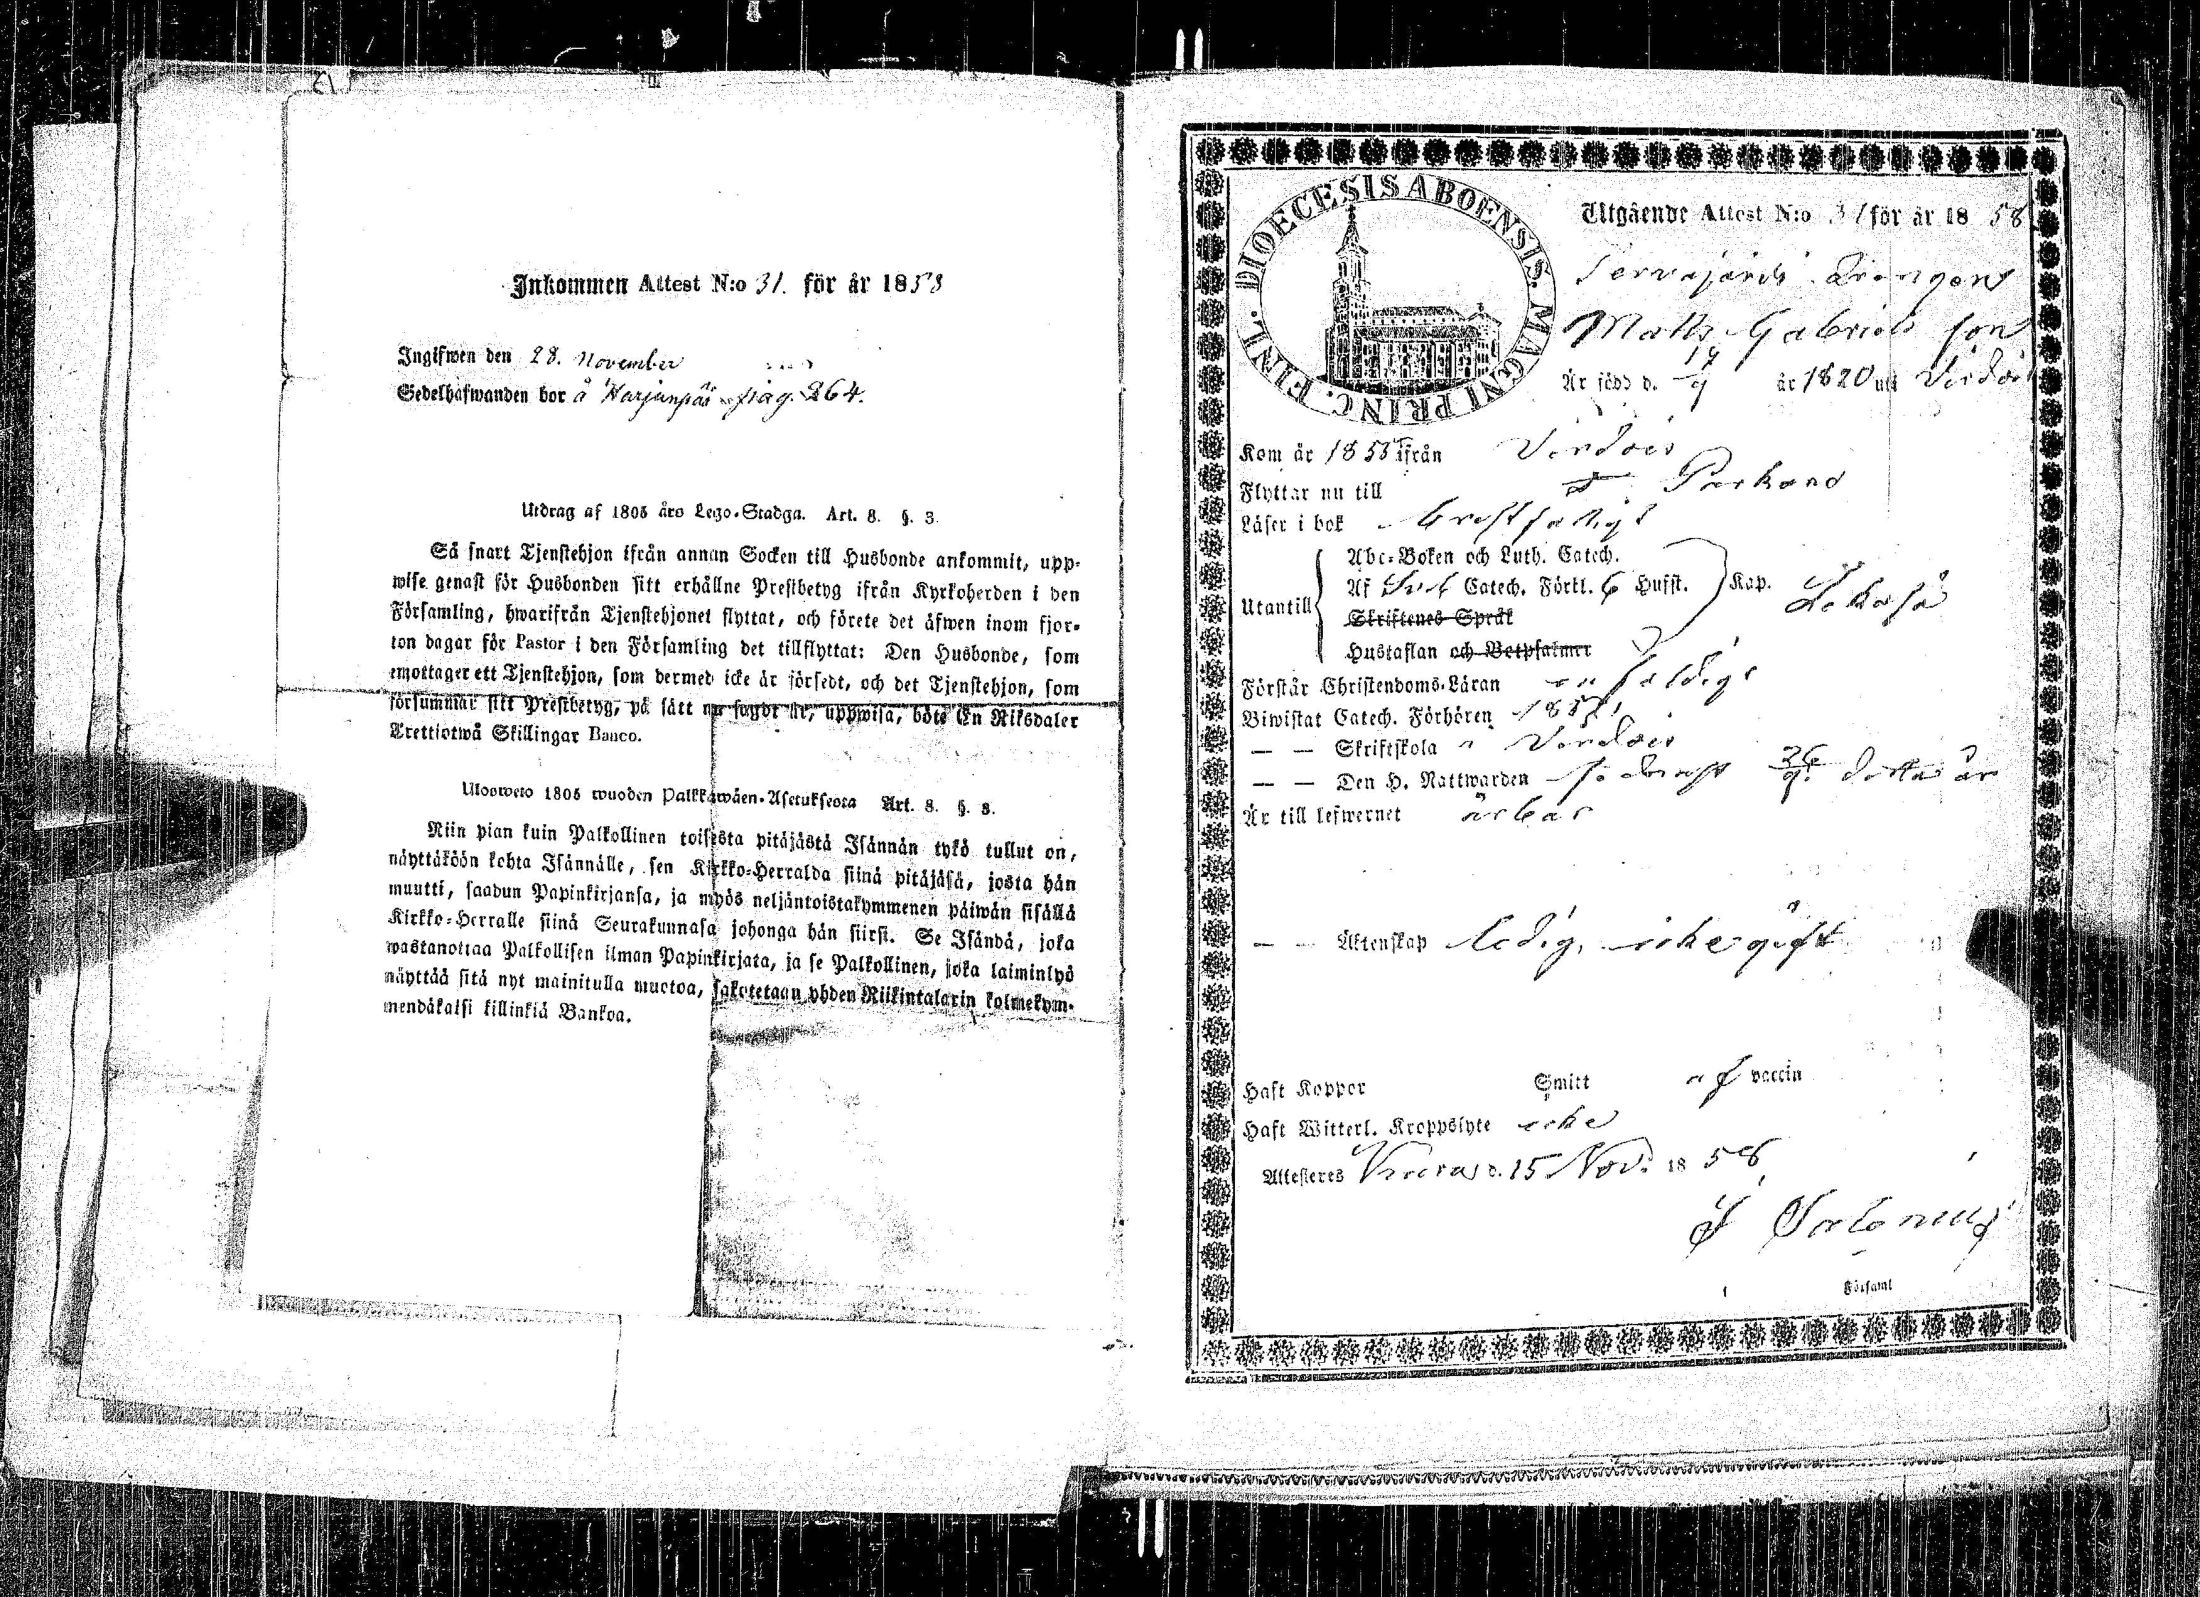 Inkommen Attest N:o 31. för år 1858
Ingifwen den 28. November
Sedelhafwanden bor å Harjunpää pag. 264.
Utdrag af 1805 års Lego-Stadga. Art. 8. §. 3.
Så snart Tjenstehjon ifrån annan Socken till Husbonde ankommit, upp-
wise genast för Husbonden sitt erhållne Prestbetyg ifrån Kyrkoherden i den
Församling, hwarifrån Tjenstehjonet flyttat, och förete det äfwen inom fjor-
ton dagar för Pastor i den Församling det tillflyttat: Den Husbonde, som
emottager ett Tjenstehjon, som dermed icke är försedt, och det Tjenstehjon, som
försummar sitt Prestbetyg, på sätt nu sagdt är, uppwisa, böte En Riksdaler
Trettiotwå Skillingar Banco.
Ulosweto 1805 wuoden Palkkawäen-Asetuksesta Art. 8. §. 3.
Niin pian kuin Palkollinen toisesta pitäjästä Isännän tykö tullut on,
näyttäköön kohta Isännälle, sen Kirkko-Herralda siinä pitäjäsä, josta hän
muutti, saadun Papinkirjansa, ja myös neljäntoistakymmenen päiwän sisällä
Kirkko-Herralle siinä Seurakunnasa johonga hän siirsi. Se Isändä, joka
wastanottaa Palkollisen ilman Papinkirjata, ja se Palkollinen, joka laiminlyö
näyttää sitä nyt mainitulla muotoa, sakotetaan yhden Riikintalarin kolmekym-
mendäkaksi killinkiä Bankoa.
DIOECESIS ABOENSIS. MAGNI PRINC. FINL.
Utgående Attest N:o 31 för år 1858
Drängen
Matts Gabriels son
Är född d. 17/9 år 1820 uti Virdois
Kom år 1855 ifrån Virdois
Flyttar nu till Parkano
Läser i bok
Utantill
Abc-Boken och Luth. Catech.
Af Catech. Förkl. 6 Hufst.
Skriftenes Språk
Hustaflan och Botpsalmer
Kap.
Förstår Christendoms-Läran enfaldigt
Biwistat Catech. Förhören 1857
— — Skriftskola i Virdois
— — Den H. Nattwarden sednast 26/9 detta år
Är till lefwernet ärbar
— — Äktenskap ledig, icke gift
Haft Koppor Smitt af vaccin
Haft Witterl. Kroppslyte icke
Attesteres d. 15 Nov. 1858
Församl